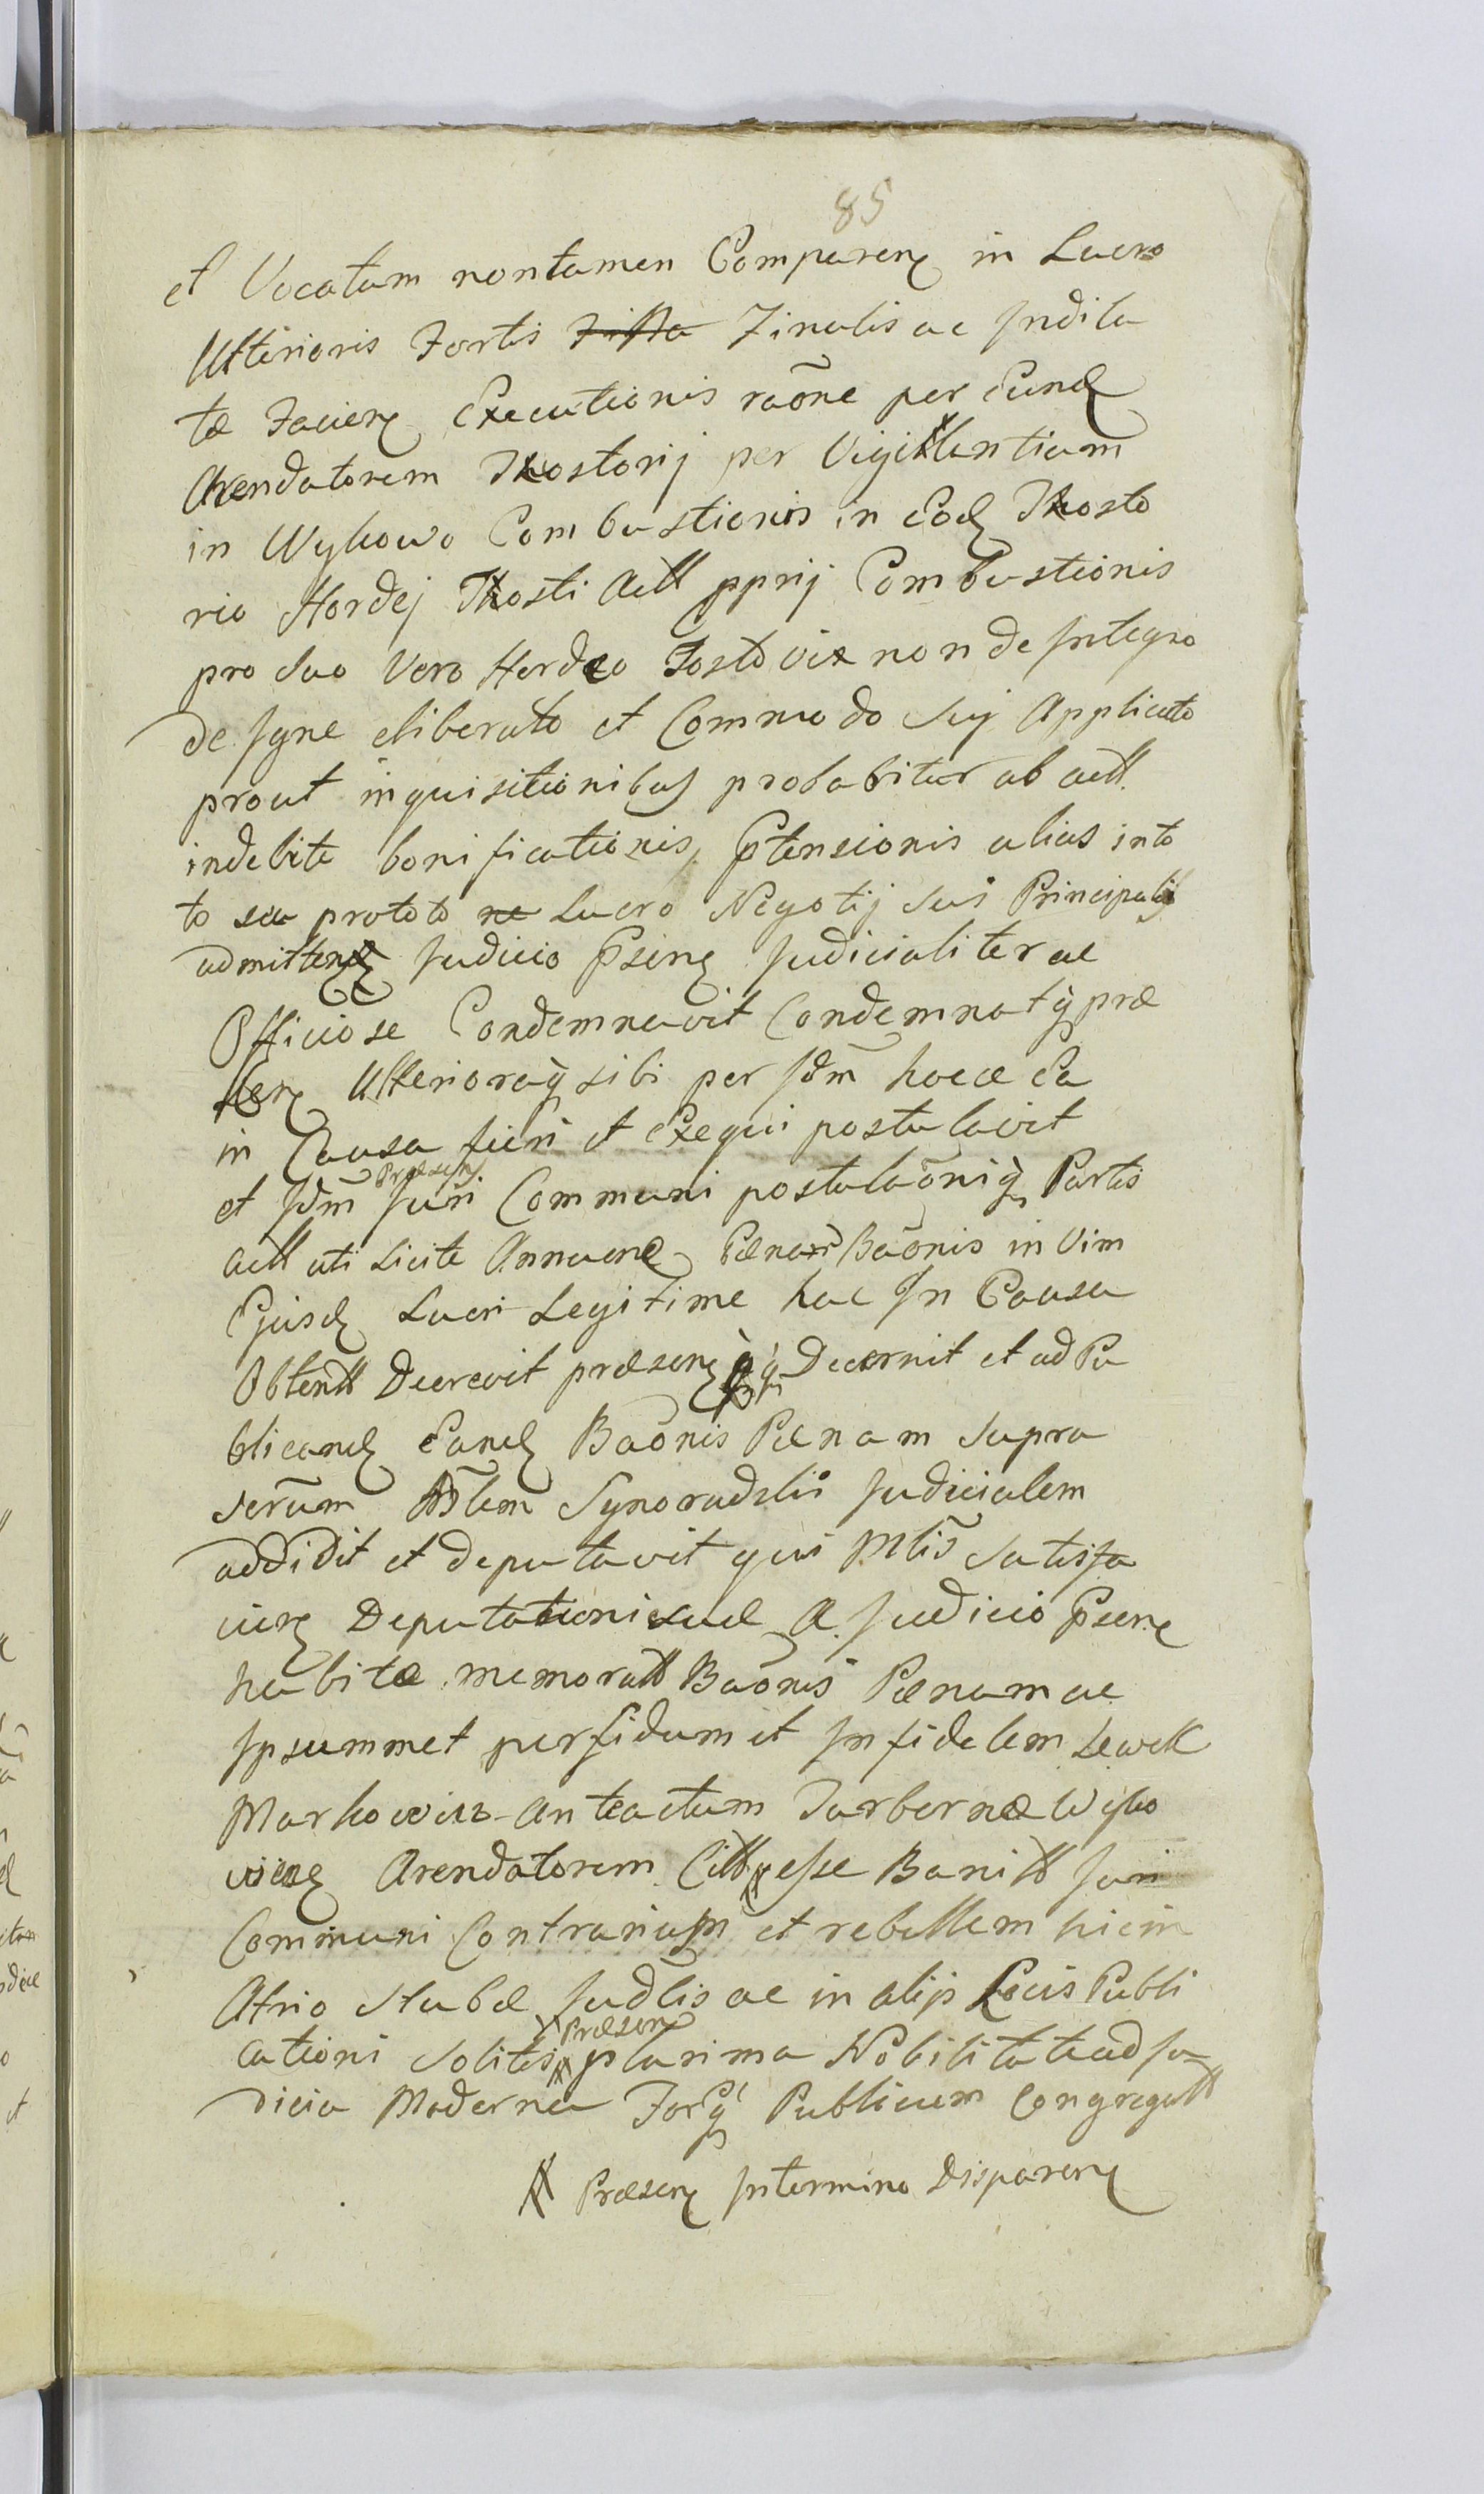 85
et Vocatum nontamen Comparenꝫ in Lucro
Ulterioris Fortis Finalis ac Indila
tæ Facienꝫ Executionis raõne per Eundꝫ
Arendatorem Tkostorij per Vigillantiam
in Wykowo Combustionis in Eodꝫ Tkosto
rio Hordej Tkosti Actt pprij Combustionis
pro suo Vero Hordeo Tosto vix non de Integro
de Igne eliberato et Commodo suj Applicato
prout inquisitionibus probabitur ab actt.
indebite bonificationis, Ptensionis alias into
to seu prototo Lucro Negotij sui Principalis
admittendꝫ Judicio Psenꝫ Judicialiter ac
Officiose Condemnavit Condemnatq̃ præ
senꝫ Ulterioraq̃ sibi per Jdm̃ hocce Ea
in Causa fieri et Exequi postulavit
Præsenꝫ
et Jdm̃ Juri Communi postulaõniq̃ Partis
actt uti Licite Annuendꝫ Pænam Baõnis in Vim
Ejusdꝫ Lucri Legitime hac In Causa
Obtentt Decrevit præsenꝫ q̃ Decernit et ad Pu
blicandꝫ Eandꝫ Baõnis Pænam supra
serũm Mĩstlem Synoradzlii Judicialem
addidit et deputavit qui Mtĩs satisfa
cienꝫ Deputationi suæ A Judicio Psenꝫ
habitæ memoratt Baõnis Pænam ac
Ipsummet perfidum et Infidelem Lewek
Markowicz Anteactum Tarbernæ Wyko
wienꝫ Arendatorem Citt esse Banitt Juri
Communi Contrarium et rebellem hic in
Atrio Stubæ Judlis ac in alijs Locis Publi
Præsenꝫ
cationi solitis plurima Nobilitate ad Ju
dicia Moderna Forq̃ Publicum Congregatt
Præsenꝫ Intermino Disparenꝫ